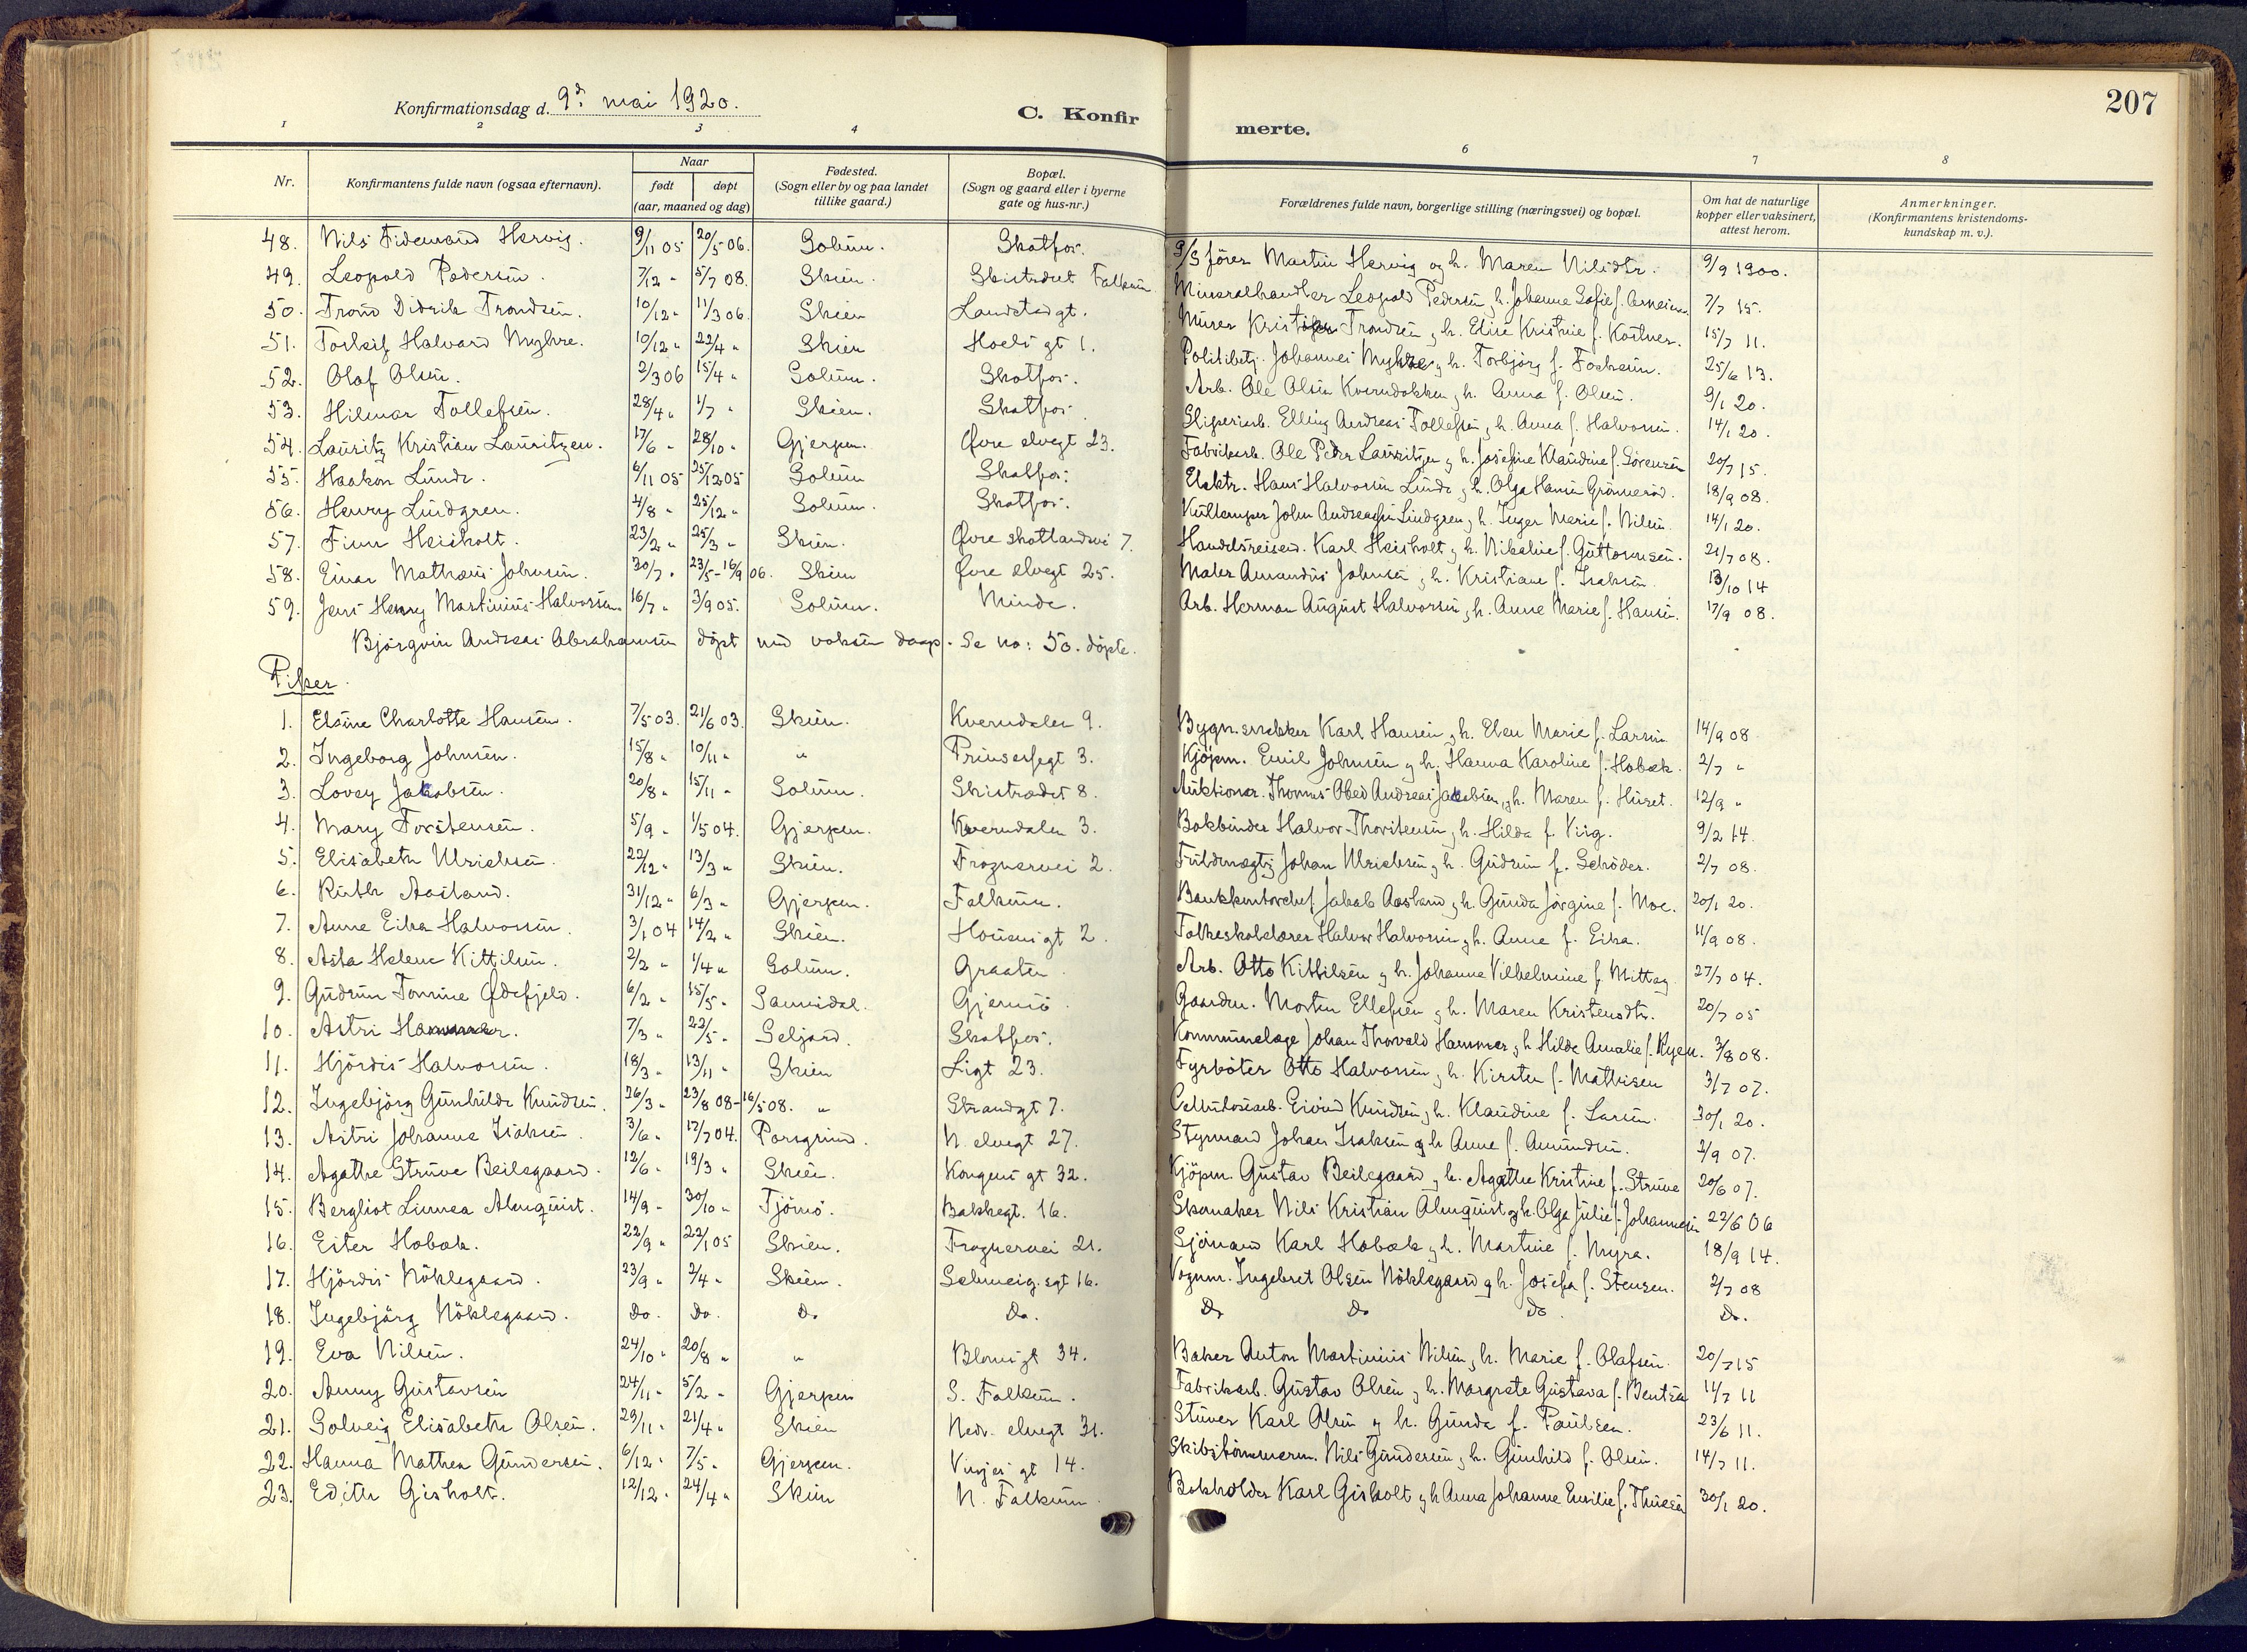 Konfirmationsdag d. 9d. mai 1920. C. Konfirmerte. 207
1 2 3 4 6 7 8
Nr. Konfirmantens fulde navn (ogsaa efternavn). Naar født døpt (aar, maaned og dag) Fødested. (Sogn eller by og paa landet tillike gaard.) Bopæl. (Sogn og gaard eller i byerne gate og hus-nr.) Forældrenes fulde navn, borgerlige stilling (næringsvei) og bopæl. Om hat de naturlige kopper eller vaksinert, attest herom. Anmerkninger. (Konfirmantens kristendoms-kundskap m. v.).
48. Nils Tidemand Hervig. 9/11 05 20/5 06. Solum. Skotfos. S/S fører Martin Hervig og h. Maren Nilsdtr. 9/9 1900.
49. Leopold Pedersen. 7/12 " 5/7 08. Skien. Skistrædet Falkum Mineralhandler Leopold Pedersen, h. Johanne Sofie f. 7/7 15.
50. Trond Didrik Trondsen. 10/12 " 11/3 06. Skien Landstadgt. Murer Trondsen, h. Elise Kristine f. Kastner. 15/7 11.
51. Torleif Halvard Myhre. 10/12 " 22/4 " Skien Hoels gt 1. Politibetj. Johannes Myhre, h. Torbjørg f. 25/6 13.
52. Olaf Olsen. 2/3 06 15/4 " Solum. Skotfos. Arb. Ole Olsen Kverndokken, h. Anna f. Olsen. 9/1 20.
53. Hilmar Tollefsen. 28/4 " 1/7 " Skien. Skotfos. Sliperiarb. Elling Andreas Tollefsen, h. Anna f. Halvorsen. 14/1 20.
54. Lauritz Kristian Lauritzen. 17/6 " 28/10 " Gjerpen. Øvre elvegt 23. Fabrikarb. Ole Peder Lauritzen og h. Josefine Klaudine f. Sørensen 20/7 15.
55. Haakon Lunde. 6/11 05 25/12 05 Solum Skotfos. Elektr. Hans Halvorsen Lunde, h. Olga Hansen Grønnerød. 18/9 08.
56. Henry Lindgren. 4/8 " 25/12 " Solum. Skotfos. John Andreassen Lindgren, h. Inger Marie f. Nilsen. 14/1 20.
57. Finn Heisholt. 23/2 " 25/3 " Skien. Øvre skotlandsvei 7. Handelsreisend. Karl Heisholt, h. Nikoline f. Guttormsen. 21/7 08.
58. Einar Mathæus Johnsen. 30/7 " 23/5-16/9 06. Skien Øvre elvegt 25. Maler Amandus Johnsen, h. Kristiane f. Isaksen. 13/10 14
59. Jens Henry Martinius Halvorsen 16/7 " 3/9 05. Solum. Minde. Arb. Herman August Halvorsen, h. Anne Marie f. Hansen. 17/9 08.
Bjørgvin Andreas Abrahamsen døpt ved voksen daap. Se no: 50. døpte.
Piker.
1. Elsine Charlotte Hansen. 7/5 03. 21/6 03. Skien. Kverndalen 9. Bygn.snekker Karl Hansen, h. Elen Marie f. Larsen 14/9 08
2. Ingeborg Johnsen. 15/8 " 10/11 " " Prinsessegt 3. Kjøpm. Emil Johnsen, h. Hanna Karoline f. Hobæk. 2/7 "
3. Lovey Jakobsen. 20/8 " 15/11 " Solum. Skistrædet 8. Auktionar. Thomas Obed Andreas Jakobsen, h. Maren f. Huset. 12/9 "
4. Mary Torstensen. 5/9 " 1/5 04. Gjerpen. Kverndalen 3. Bokbinder Halvor Thorstensen, h. Hilda f. Virg. 9/2 14.
5. Elisabeth Ulrichsen. 22/12 " 13/3 " Skien. Frognervei 2. Fuldmægtig Johan Ulrichsen, h. Gudrun f. Schrøder. 2/7 08.
6. Ruth Aasland. 31/12 " 6/3 " Gjerpen. Falkum. Bankkontorchef Jakob Aasland, h. Gunda Jørgine f. Moe. 20/1 20.
7. Anne Eika Halvorsen. 3/1 04 14/2 " Skien. Houens gt 2. Folkeskolelærer Halvor Halvorsen, h. Anne f. Eika. 11/9 08.
8. Asta Helene Kittilsen. 2/2 " 1/4 " Solum. Graaten. Arb. Otto Kittilsen, h. Johanne Vilhelmine f. Mittag. 27/7 04.
9. Gudrun Tomine Ødefjeld. 6/2 " 15/5 " Sannidal. Gjemsø. Gaardbr. Morten Ellefsen, h. Maren Kristensdtr. 20/7 05
10. Astri Hammer. 7/3 " 22/5 " Seljord. Skotfos. Kommunelæge Johan Thorvald Hammer, h. Hilda Amalie f. Ryen. 3/8 08.
11. Hjørdis Halvorsen. 18/3 " 13/11 " Skien Ligt 23. Fyrbøter Otto Halvorsen, h. Kirsten f. Mathisen 3/7 07.
12. Ingebjørg Gunhilde Knudsen. 26/3 " 23/8 08-16/5 08. " Strandgt 7. Cellulosearb. Eivind Knudsen, h. Klaudine f. Larsen. 30/1 20.
13. Astri Johanne Isaksen. 3/6 " 17/7 04. Porsgrund. N. elvegt 27. Styrmand Johan Isaksen og h. Anne f. Amundsen. 2/9 07.
14. Agathe Struve Beilegaard. 12/6 " 19/3 " Skien. Kongens gt 32. Kjøpm. Gustav Beilegaard, h. Agathe Kristine f. Struve 20/6 07.
15. Bergliot Linnea Almquist. 14/9 " 30/10 " Tjømø. Bakkegt. 16. Skomaker Nils Kristian Almquist og h. Olga Julie f. Johannesen 22/6 06
16. Ester Hobæk. 22/9 " 22/1 05 Skien. Frognervei 21. Sjømand Karl Hobæk, h. Martine f. Myra. 18/9 14.
17. Hjørdis Nøklegaard. 23/9 " 2/4 " Skien. Schweig.sgt 16. Vognm. Ingebret Olsen Nøklegaard og h. Josefa f. Stensen. 2/7 08
18. Ingebjørg Nøklegaard. Do. Do. Do Do. Do Do Do Do.
19. Eva Nilsen. 24/10 " 20/8 " " Bloms gt 34. Baker Anton Martinius Nilsen, h. Marie f. Olafsen. 20/7 15
20. Anny Gustavsen 24/11 " 5/2 " Gjerpen S. Falkum. Fabrikarb. Gustav Olsen, h. Margrete Gustava f. Bentsen 11/7 11
21. Solveig Elisabeth Olsen. 29/11 " 21/4 " Skien Nedr. elvegt 31. Stuver Karl Olsen og h. Gunda f. Paulsen. 23/6 11.
22. Hanna Mathea Gundersen. 6/12 " 7/5 " Gjerpen. Vinjes gt 14. Skibstømmerm. Nils Gundersen, h. Gunhild f. Olsen. 14/7 11.
23. Edith Gisholt. 12/12 " 24/4 " Skien N. Falkum. Bokholder Karl Gisholt, h. Anna Johanne Emilie f. Thuesen 30/1 20.